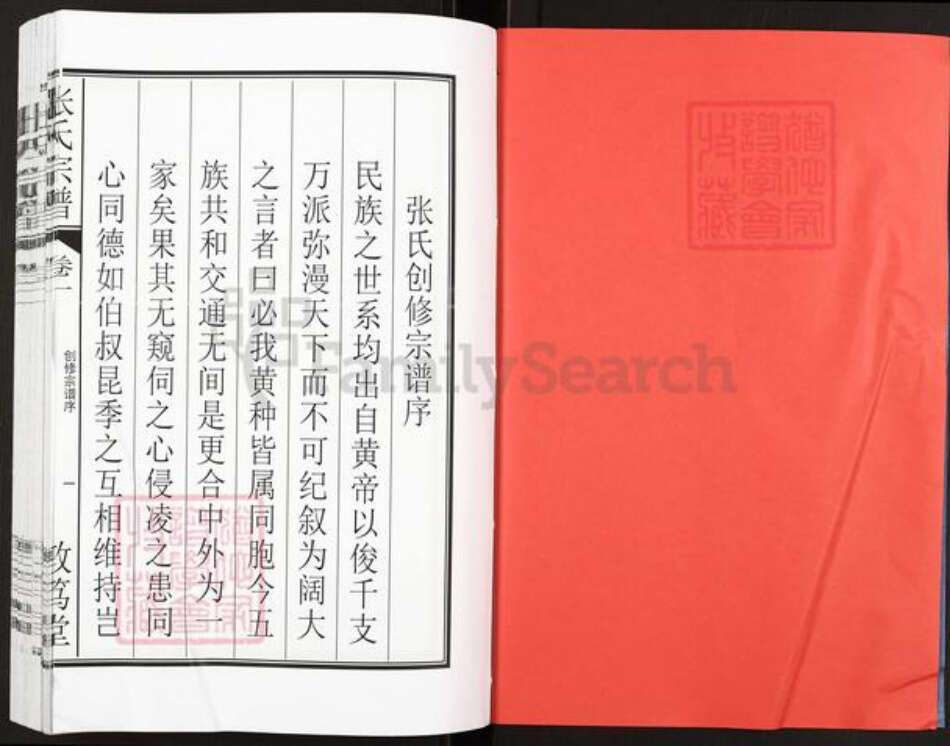 张氏创修宗谱序
民族之世系均出自黄帝以俊千支
万派弥漫天下而不可纪叙为阔大
之言者曰必我黄种皆属同胞今五
族共和交通无间是更合中外为一
家矣果其无窥伺之心侵凌之患同
心同德如伯叔昆季之互相维持岂
张氏宗谱
卷一
创修宗谱序
一
敦笃堂
FamilySearch